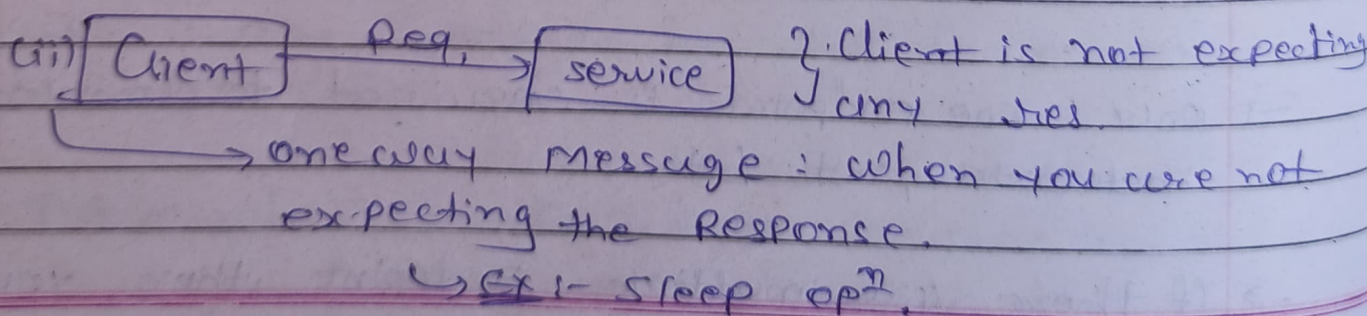 (ii) Client Req. service }. Client is not expecting
any res.
→ one way message : when you are not
expecting the Response.
↳ Ex :- Sleep opⁿ.